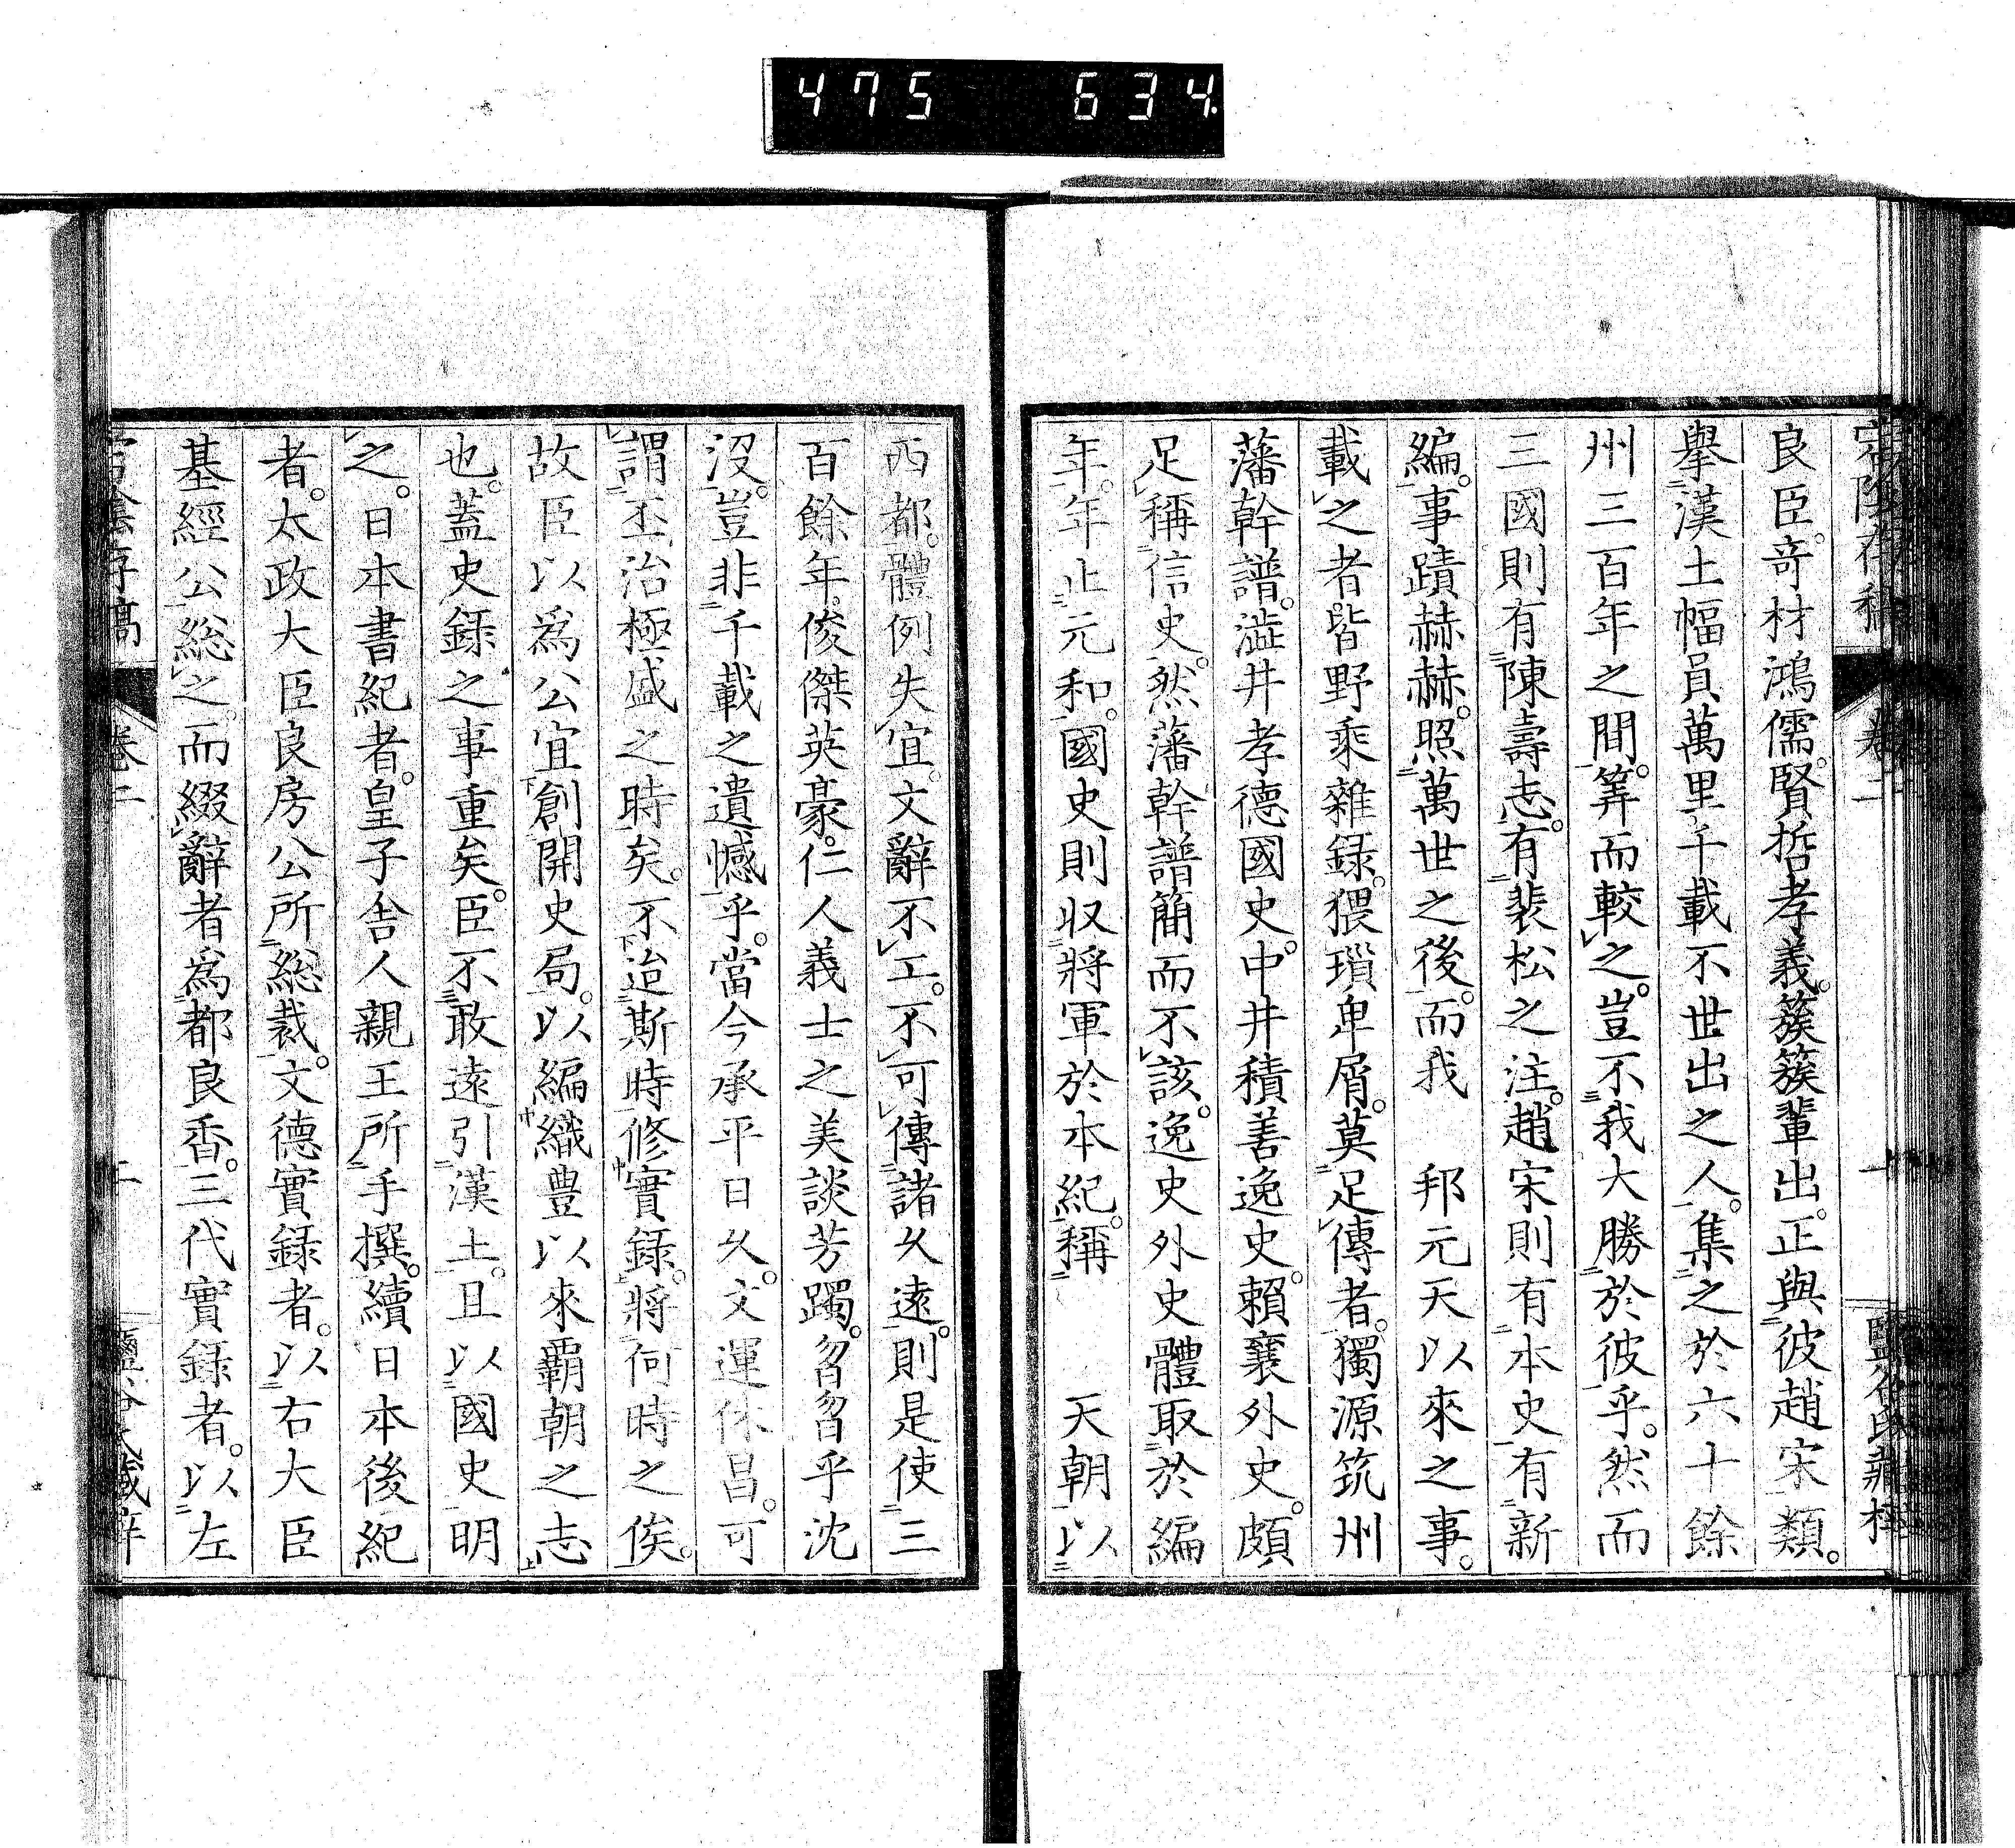 475 634
良臣。奇材鴻儒。賢哲孝義。簇簇輩出。正與彼趙宋類。
擧漢土幅員萬里千載不世出之人。集之於六十餘
州三百年之間。筭而較之。豈不我大勝於彼乎。然而
三國則有陳壽志。有裴松之注。趙宋則有本史有新
編。事蹟赫赫。照萬世之後。而我 邦元天以來之事。
載之者。皆野乘雜録。猥瑣卑屑。莫足傳者。獨源筑州
藩幹譜。澁井孝德國史。中井積善逸史。賴襄外史。頗
足稱信史。然藩幹譜簡而不該。逸史外史體取於編
年。年止元和。國史則収將軍於本紀。稱 天朝以
西都。體例失宜。文辭不工。不可傳諸久遠。則是使三
百餘年。俊傑英豪。仁人義士之美談芳躅。曶曶乎沈
沒。豈非千載之遺憾乎。當今承平日久。文運休昌。可
謂丕治極盛之時矣。不迨斯時修實録。將何時之俟。
故臣以爲公宜創開史局。以編織豊以來覇朝之志
也。蓋史録之事重矣。臣不敢遠引漢土。且以國史明
之。日本書紀者。皇子舍人親王所手撰。續日本後紀
者。太政大臣良房公所總裁。文德實録者。以右大臣
基經公総之。而綴辭者爲都良香。三代實録者。以左
卷二